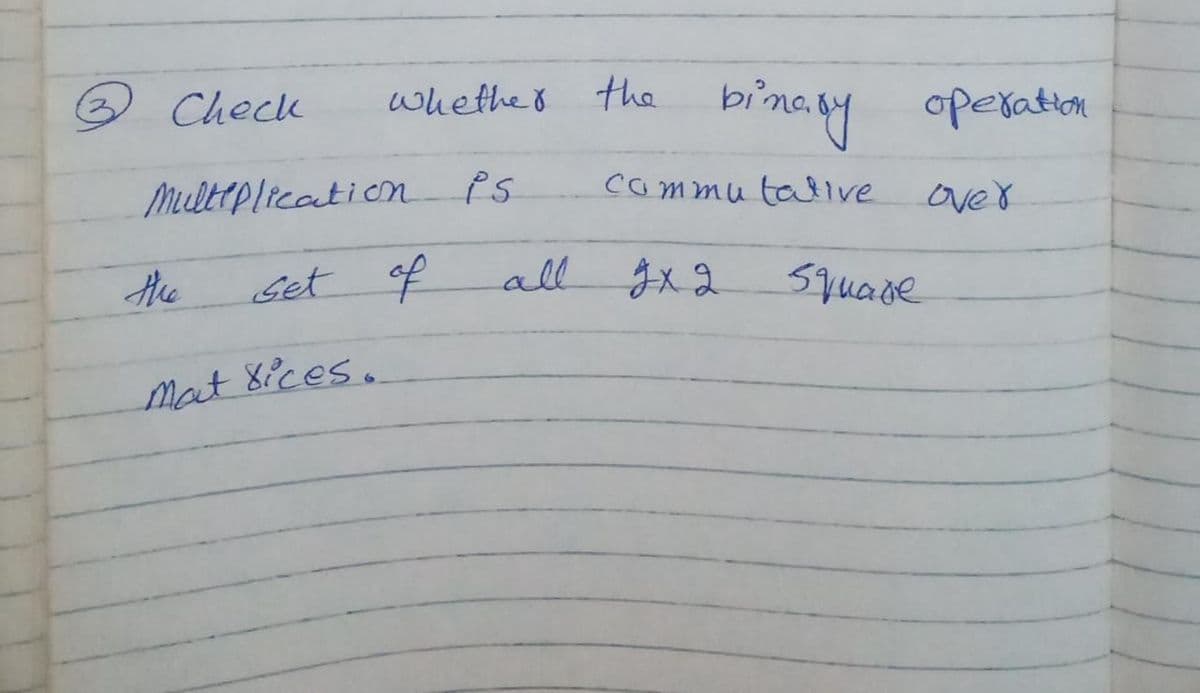 ③ Check whether the binary operation
Multiplication is commutative over
the set of all 2x2 square
matrices.